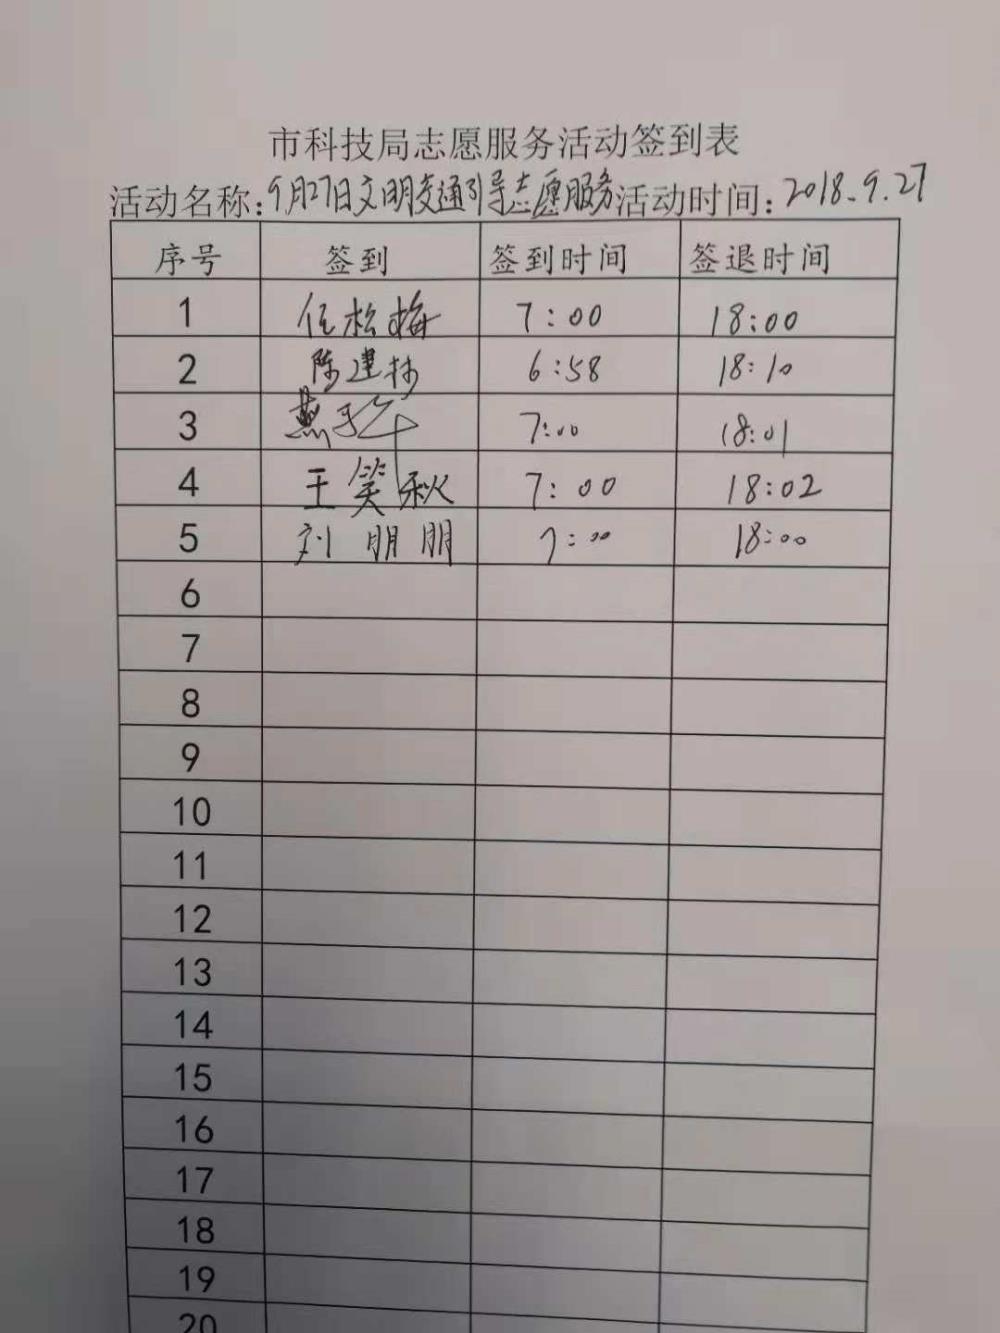 市科技局志愿服务活动签到表
活动名称:9月27日文明交通引导志愿服务活动时间:2018.9.27
序号 签到 签到时间 签退时间
1 任松梅 7:00 18:00
2 陈建林 6:58 18:10
3 燕 7:00 18:01
4 王笑秋 7:00 18:02
5 刘朋朋 7:00 18:00
6
7
8
9
10
11
12
13
14
15
16
17
18
19
20